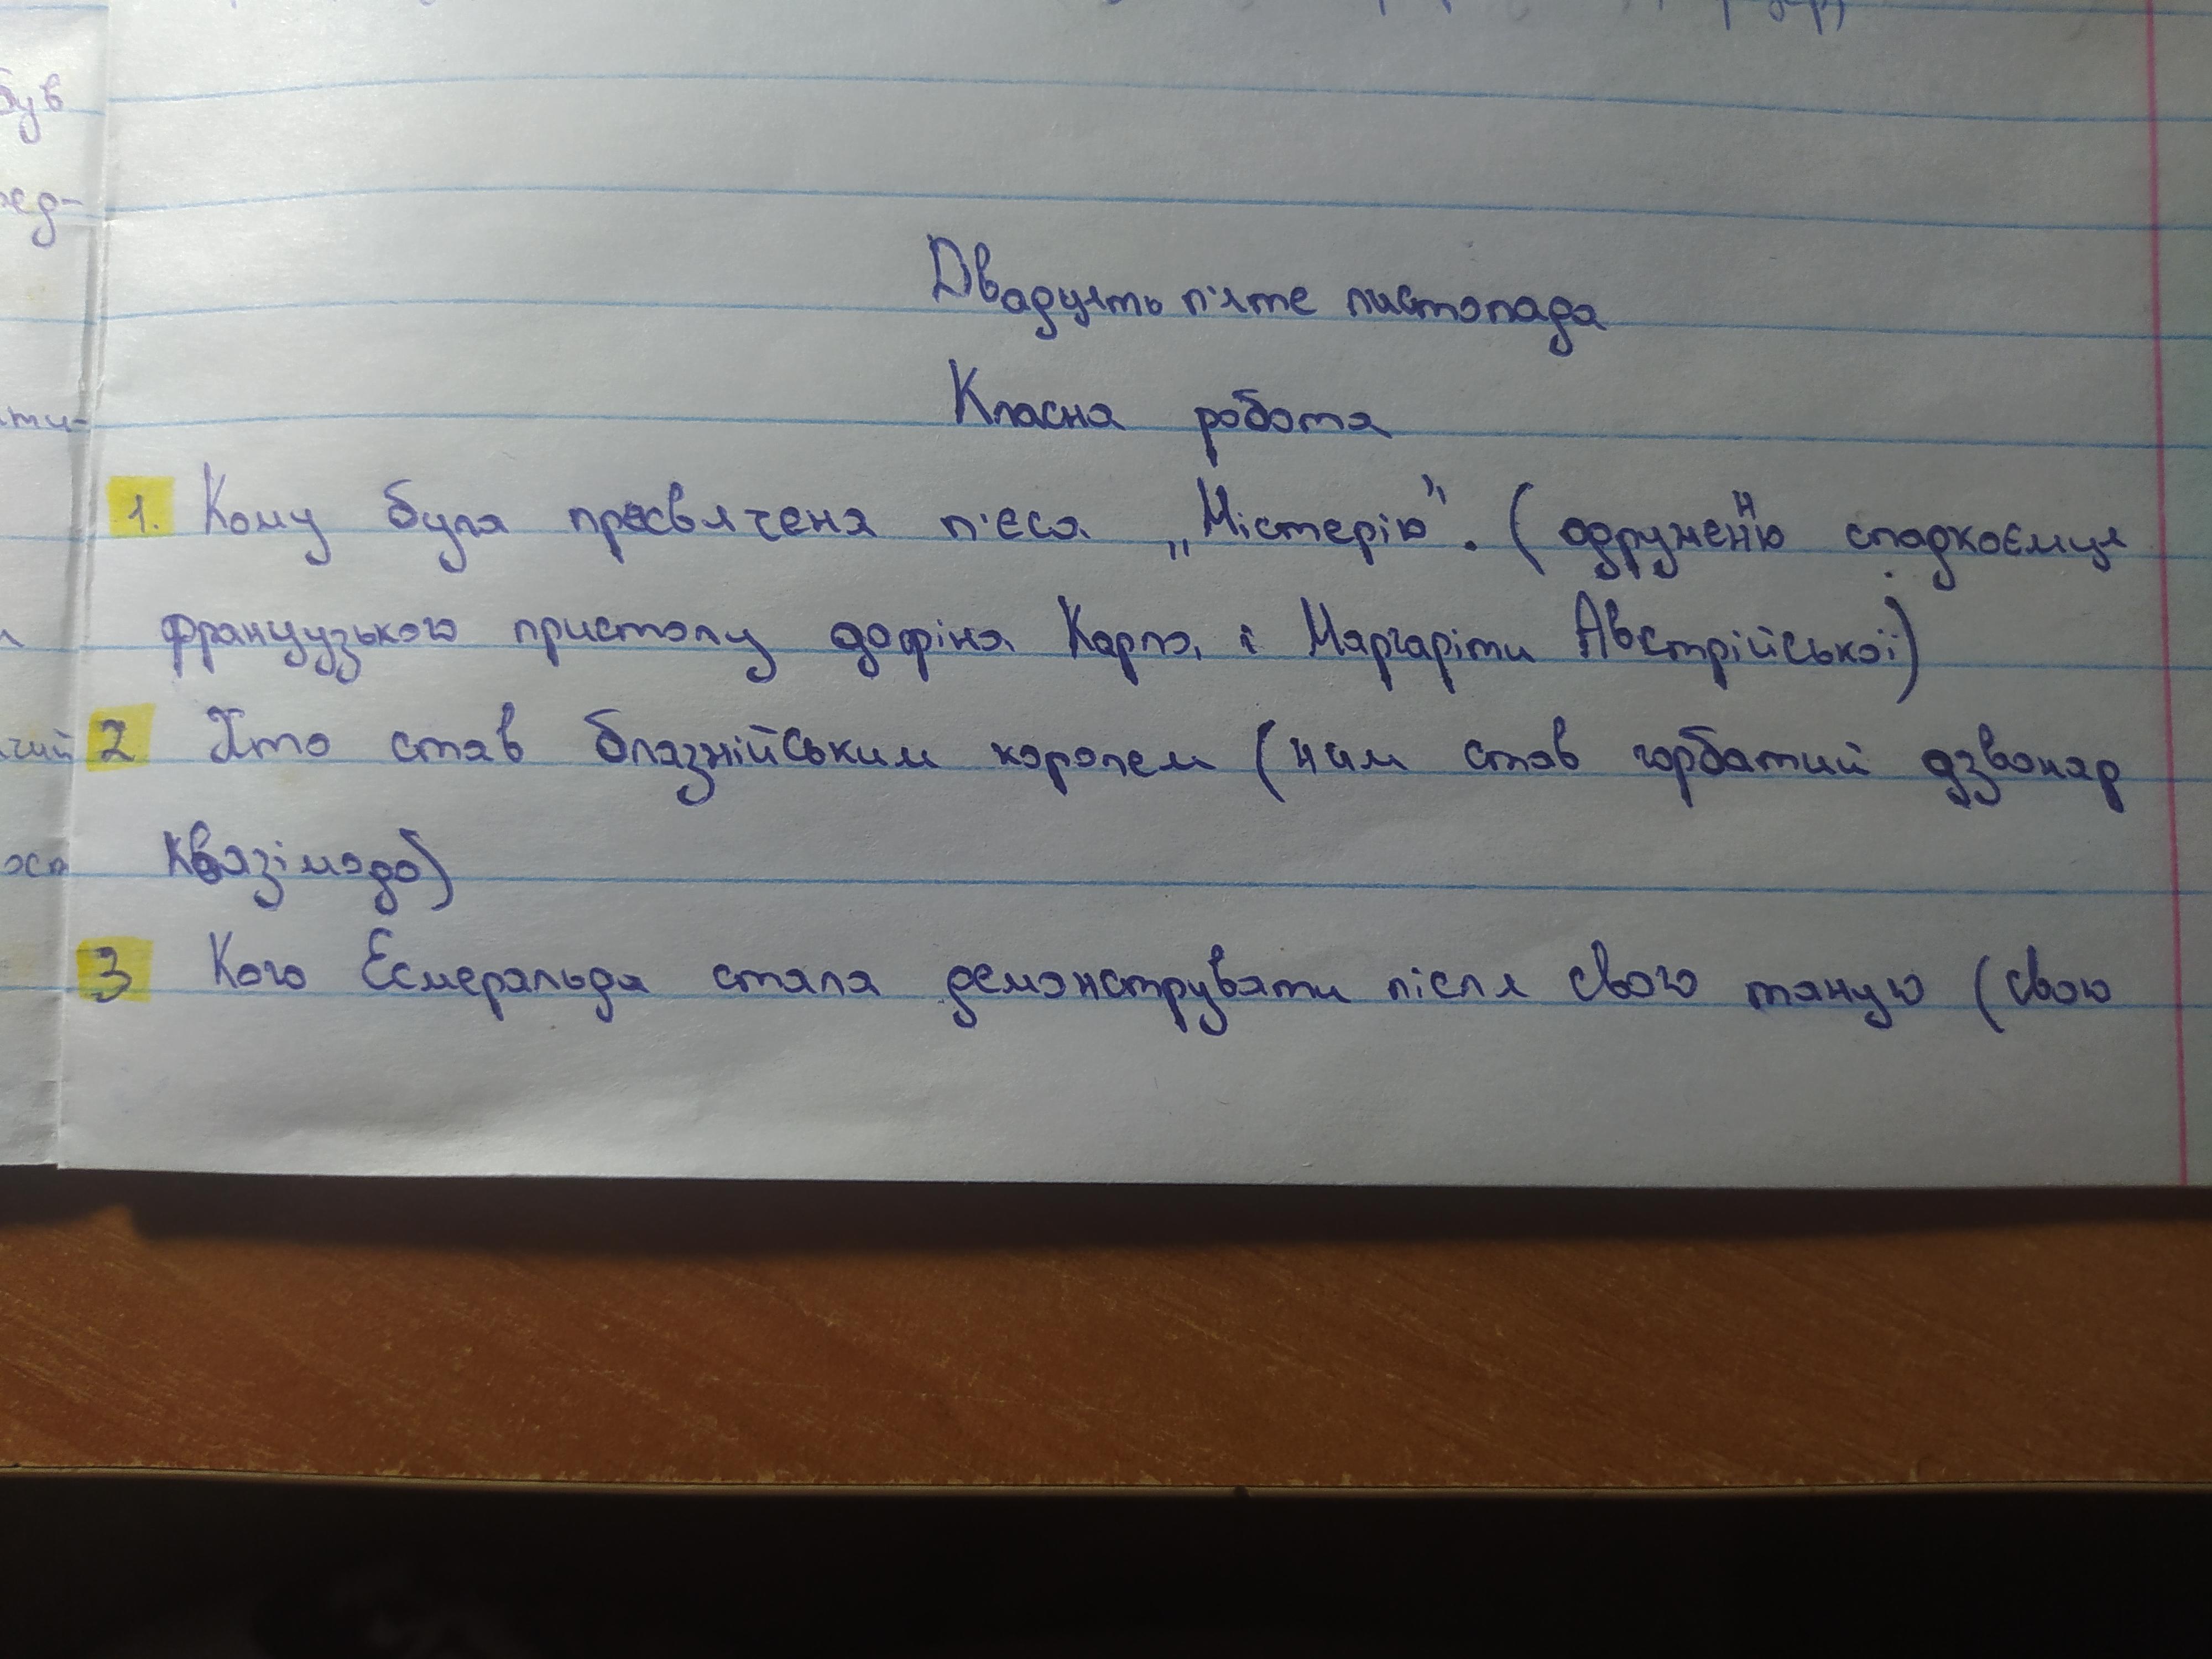 був
ред-
ти-
чий
Двадцять п'яте листопада
Класна робота
1. Кому була присвячена п'єса „Містерію”. (одруженню спадкоємця
французького пристолу дофіна Карла і Маргаріти Австрійської)
2 Хто став блазнійським королем (ним став горбатий дзвонар
Квазімодо)
3 Кого Есмеральда стала демонструвати після свого танцю (свою